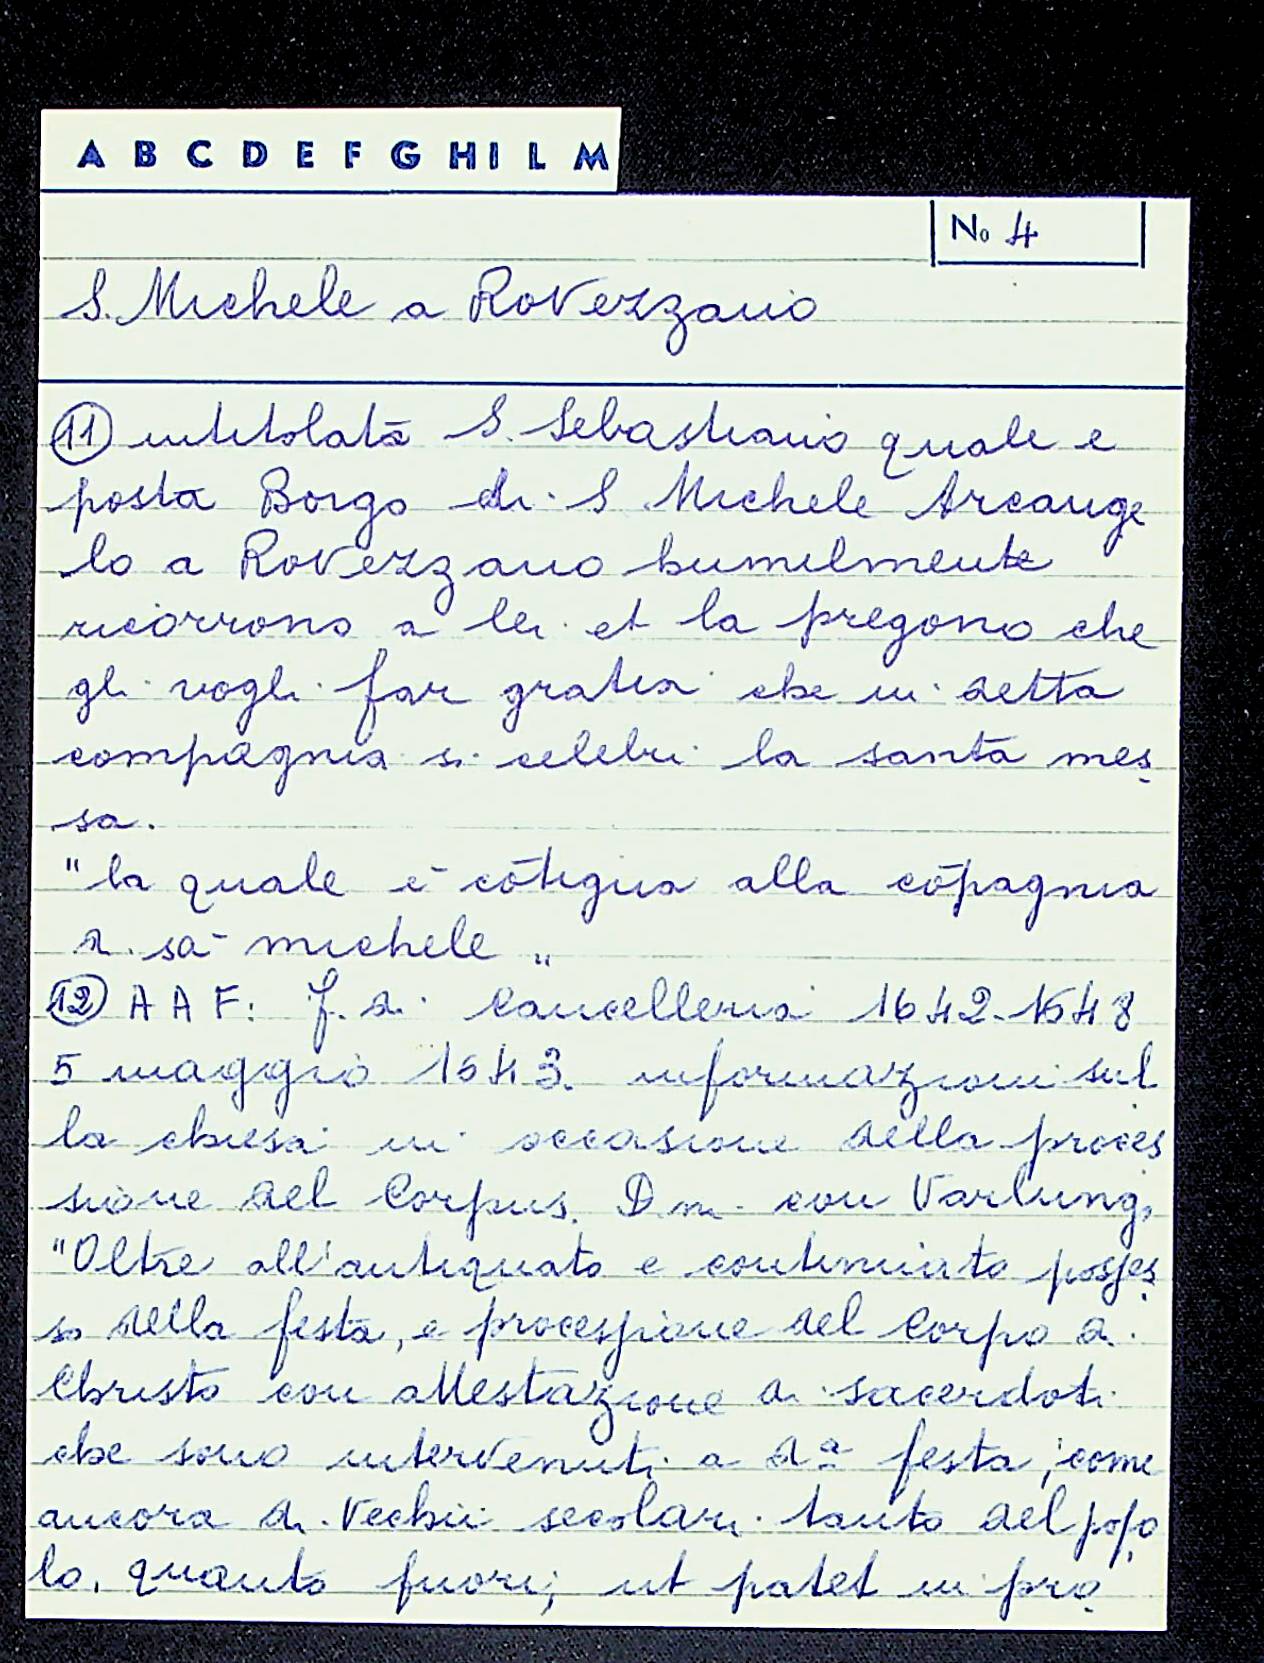 A B C D E F G H I L M
No 4
S. Michele a Rovezzano
11 intitolata S. Sebastiano quale e
posta Borgo di S Michele Arcange
lo a Rovezzano humilmente
ricorrono a lei et la pregono che
gli vogli far gratia che in detta
compagnia si celebri la santa mes
sa.
"la quale è cōtigua alla cōpagnia
di sā michele"
12 AAF: f. di Cancelleria 1642-1648
5 maggio 1643. informazioni sul
la chiesa in occasione della proces
sione del Corpus. D.ni. con Varlungo
"Oltre all'antiquato e continuato posses
so della festa, e processione del Corpo di
Christo con attestazione di sacerdoti
che sono intervenuti a d.a festa, come
ancora di Vechii secolari tanto del popo
lo, quanto fuori; ut patet in pro